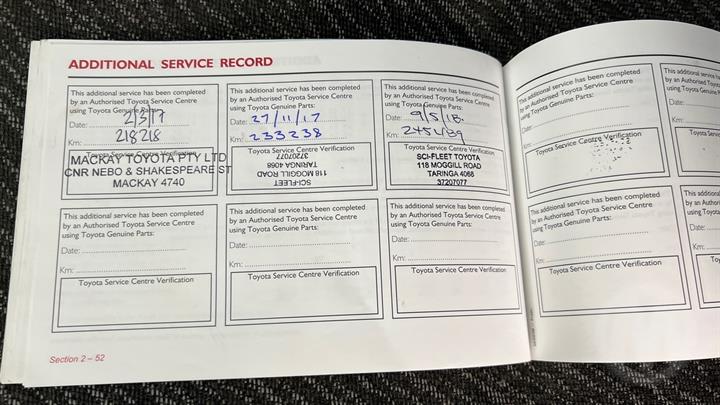 ADDITIONAL SERVICE RECORD
This additional service has been completed
by an Authorised Toyota Service Centre
using Toyota Genuine Parts:
Date: 2/3/17
Km: 218218
Toyota Service Centre Verification
MACKAY TOYOTA PTY LTD
CNR NEBO & SHAKESPEARE ST
MACKAY 4740
This additional service has been completed
by an Authorised Toyota Service Centre
using Toyota Genuine Parts:
Date: 27/11/17
Km: 233238
Toyota Service Centre Verification
SCI-FLEET
118 MOGGILL ROAD
TARINGA 4068
37207077
This additional service has been completed
by an Authorised Toyota Service Centre
using Toyota Genuine Parts:
Date: 9/5/18.
Km:
Toyota Service Centre Verification
SCI-FLEET TOYOTA
118 MOGGILL ROAD
TARINGA 4068
37207077
This additional service has been completed
by an Authorised Toyota Service Centre
using Toyota Genuine Parts:
Date:
Km:
Toyota Service Centre Verification
This additional service
by an Authorised
using Toyota
Date:
Km:
This additional service has been completed
by an Authorised Toyota Service Centre
using Toyota Genuine Parts:
Date:
Km:
Toyota Service Centre Verification
This additional service has been completed
by an Authorised Toyota Service Centre
using Toyota Genuine Parts:
Date:
Km:
Toyota Service Centre Verification
This additional service has been completed
by an Authorised Toyota Service Centre
using Toyota Genuine Parts:
Date:
Km:
Toyota Service Centre Verification
This additional service has been completed
by an Authorised Toyota Service Centre
using Toyota Genuine Parts:
Date:
Km:
Toyota Service Centre Verification
This
by an
using
Date:
Km:
Section 2 – 52